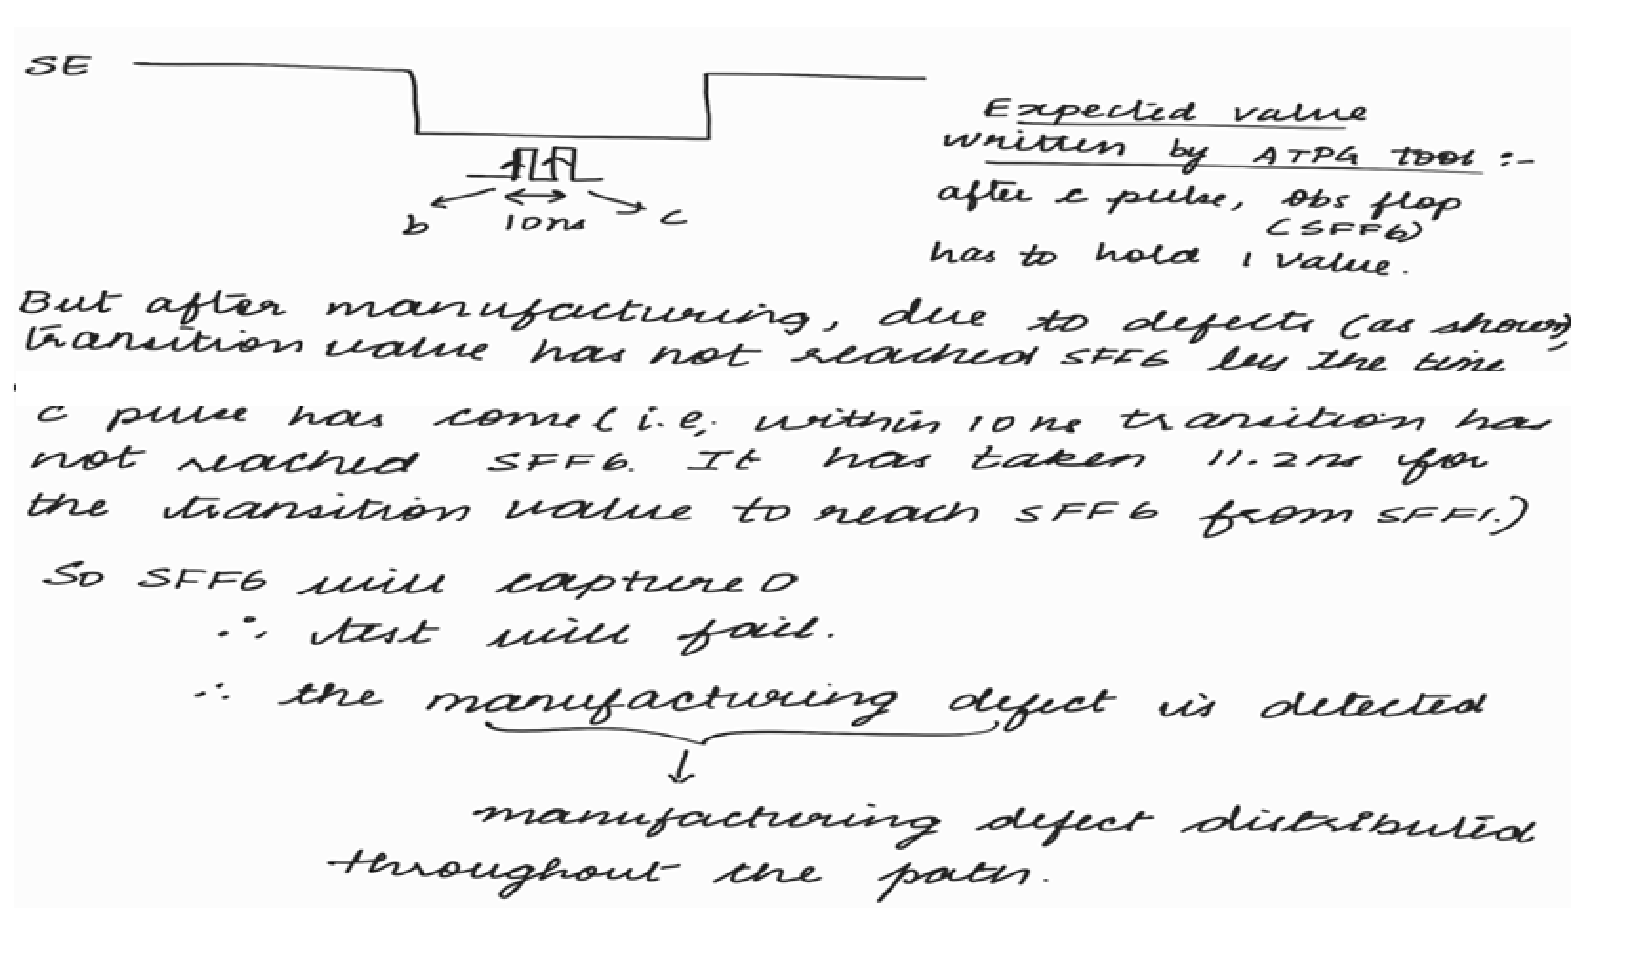 SE
Expected value
written by ATPG Tool :-
after c pulse, obs flop
(SFF6)
has to hold 1 value.
b
10ns
c
But after manufacturing, due to defects (as shown),
transition value has not reached SFF6 by the time
c pulse has come (i.e, within 10 ns transition has
not reached SFF6. It has taken 11.2ns for
the transition value to reach SFF6 from SFF1.)
So SFF6 will capture 0
∴ test will fail.
∴ the manufacturing defect is detected
manufacturing defect distributed
throughout the path.